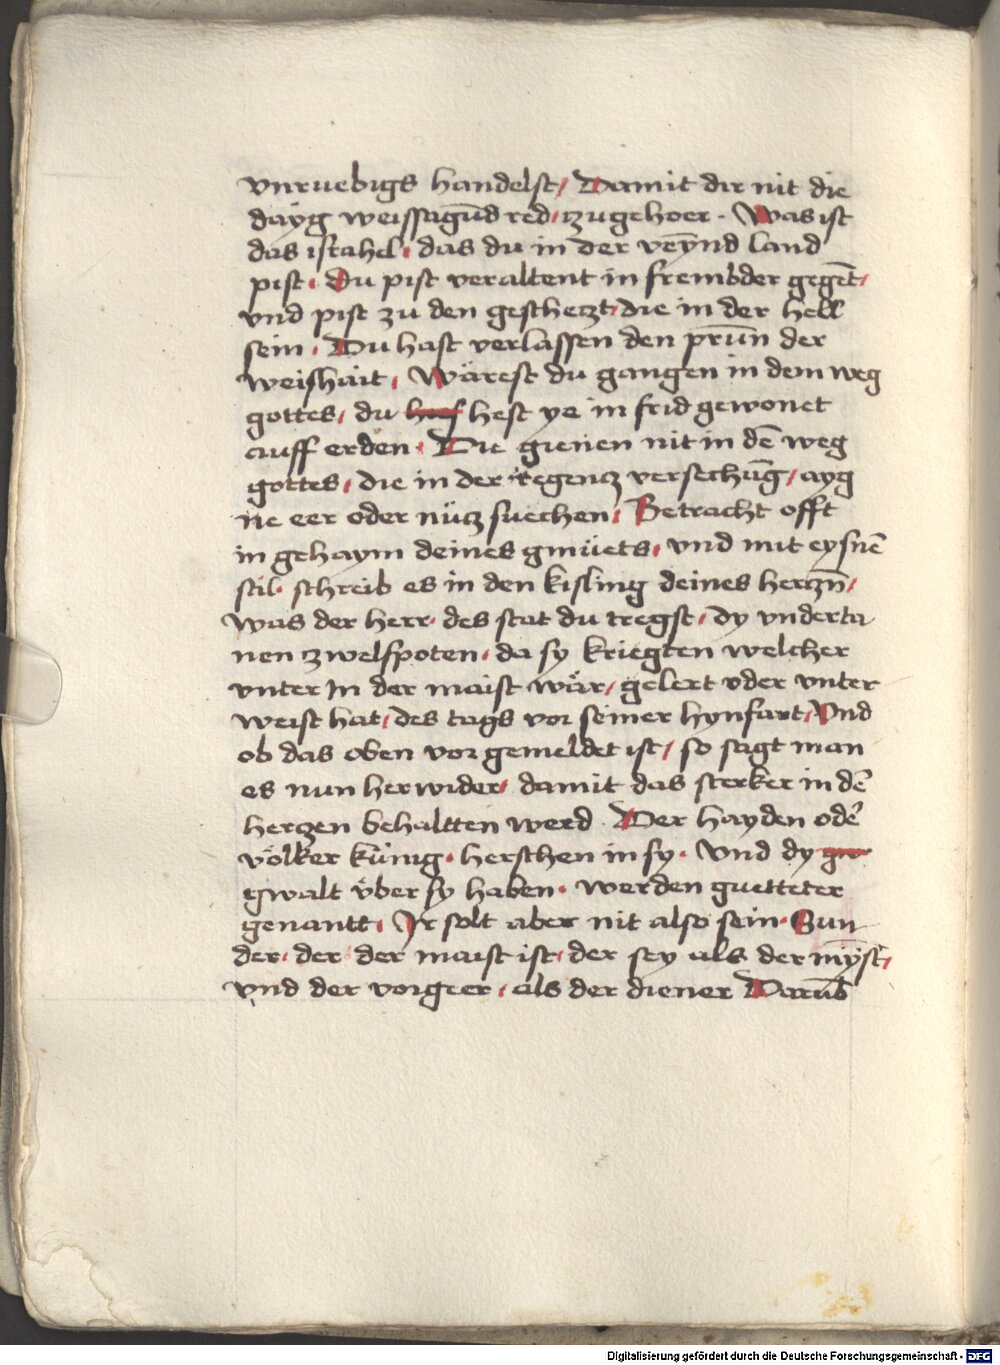 vnruebigs handelst / Damit dir nit die
dayg weissagūd red / zugehoer · Was ist
das israhel / das du in der veȳnd land
pist · Du pist veraltent in frembder gegēt /
vnd pist zu den geschetzt / die in der hell
sein · Du hast verlassen den prūn der
weishait / Wärest du gangen in dem weg
gottes / du hest ye in frid gewonet
auff erden · Die gienen nit in dē weg
gottes / die in der regencz versechūg / ayg
ne eer oder nücz suechen / Betracht offt
in gehaym deines gmüets / vnd mit eysnē
stil · schreib es in den kisling deines herczn̄ /
was der herr · des stat du tregst / dy vnderta
nen zwelfpoten · da sy kriegten welcher
vnter In der maist wär / gelert oder vnter
weist hat / des tags vor seiner hynfart / Vnd
ob das oben vor gemeldet ist / so sagt man
es nun herwider / damit das sterker in dē
herczen behaltten werd · Der hayden odē
völker künig · herschen in sy · Vnd dy
gwalt über sy haben · werden guetteter
genantt / Ir solt aber nit also sein · Sun
der · der der maist ist / der sey als der mȳst /
vnd der vorgeer / als der diener Darūb
Digitalisierung gefördert durch die Deutsche Forschungsgemeinschaft - DFG